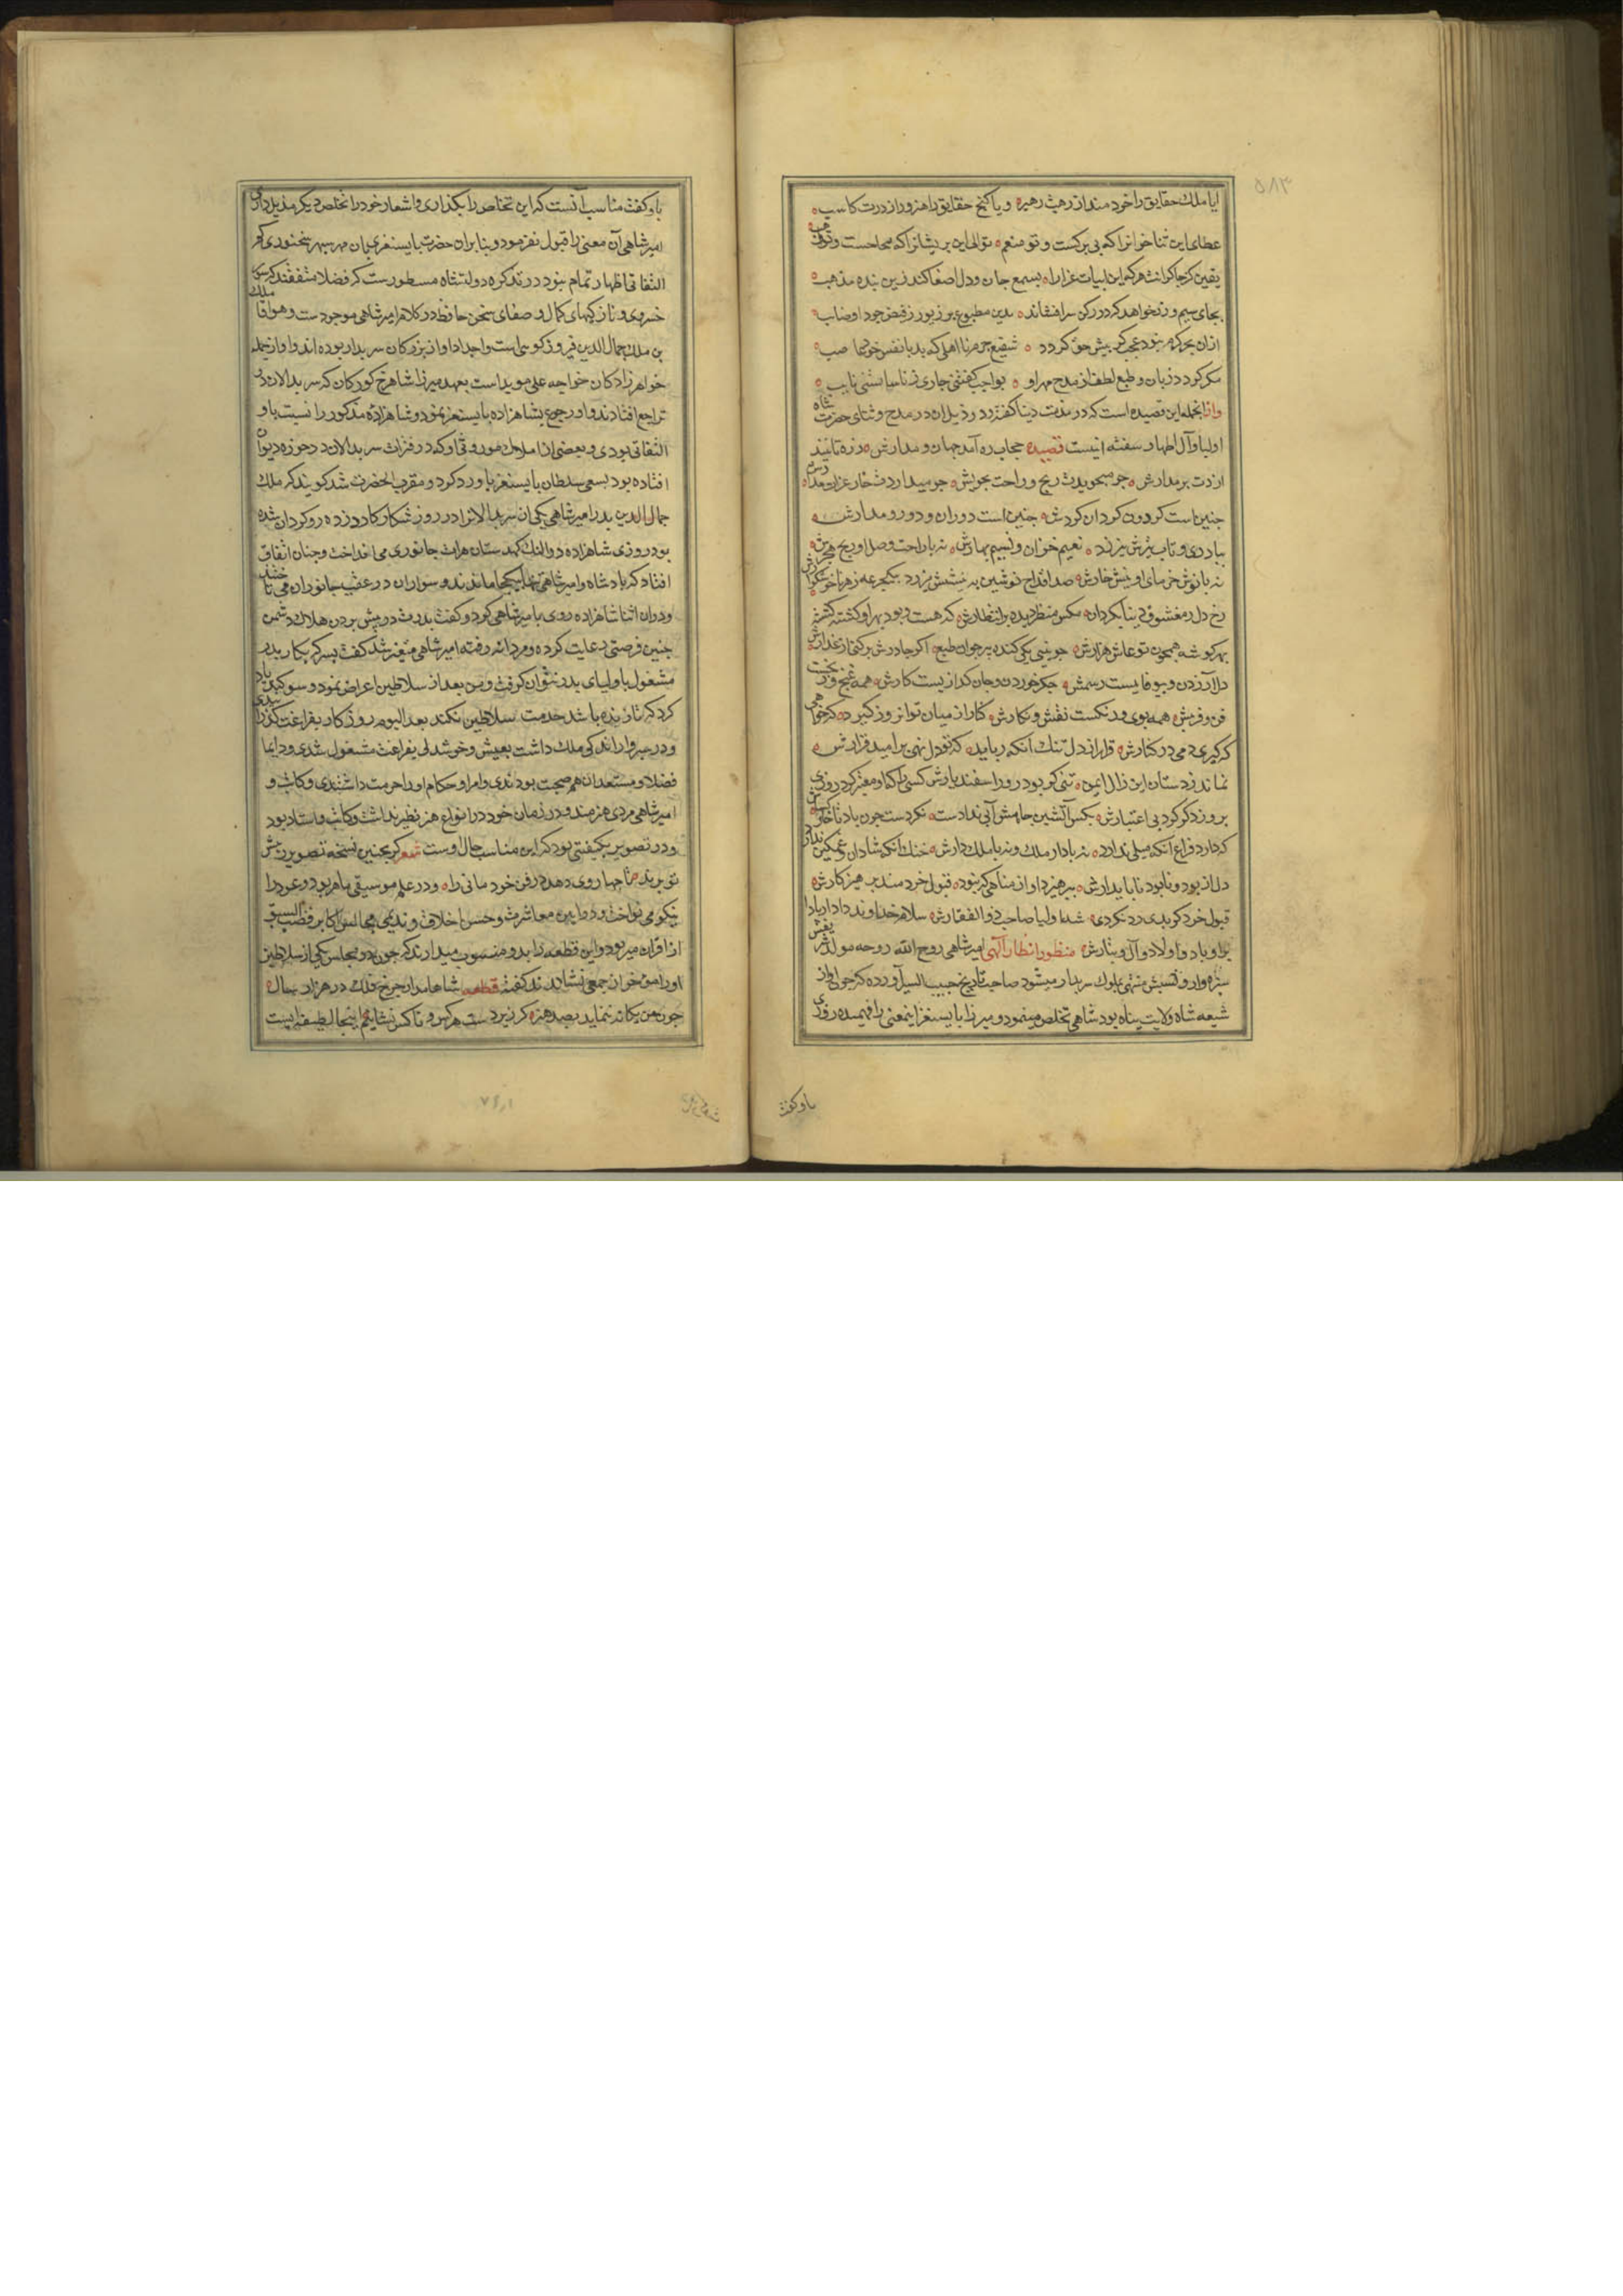 ایا ملک حقایق را خردمند از رهت رهبره و یا کنج حقایق را هنرور از درت کاسب
عطای این ثناخوانرا که بی برکست و تو منعم توالی این پریشانرا که مداحست و تو
یقین کز چاکرانت هرکه این ابیات غرا را بسمع جان و دل اصغا کند زین بنده مذهب
بجای سیم و زر خواهد کرد در رکن سر افشاند بدین مطبوع پر زیور ز فیض جود اوصاب
ازان بحر کرم نبود عجب کر پیش حق کردد شفیع جرم نااهلی که بد با نفس خود
مکر کردد زبان و طبع لطف از مدح مهر او بواجب کفتنی جاری ز ناسایستنی تایب
وازانجمله این قصیده است که در مذمت دنیا کفته و در ذیل ان در مدح و ثنای حضرت شاه
اولیا و آل اطهار سفته اینست قصیده حجاب ره آمد جهان و مدارش ز ره تا نیندازدت بر مدارش
چنین است کردون کردان کردش چنین است دوران و دور و مدارش
بیا دری و تاب تیزش نیرزد نعیم خزان و نسیم بهارش نه با راحت وصل او رنج هجرش
نه با نوش خرمای او نیش خارش صد اقداح نوشین به نیشش نیرزد بیکجرعه زهر ناخوشکوارش
رخ دل ز معشوق دنیا بکردان مکن منظر دیده بر انتظارش که هست و بود بهر او کشته کشته
بهر کوشه همچون تو عاشق هزارش چو بینی یکی کنده پیر جوان طبع اکر چادرش برکشی از عذارش
دلازردن و بیوفاییست رسمش جکر خوردن و جان کدازیست کارش همه غنج و
فن و فریش همه بوی و رنکست نقش و نکارش کنار از میان تو انروز کیرد که خواهی
که کیری دمی در کنارش قرار از دل تنک آنکه رباید که تو دل نهی بر امید قرارش
نماند ز دستان این زال ایمن تنی کر بود زور اسفندیارش کسی را که او معتبر کرد روزی
بروزدکر کرد بی اعتبارش بکس آتشین جامش آبی ندادست نکردست چون باد تا خاکسارش
که دارد فراغ آنکه میلی ندارد نه با دار ملک و نه با ملک دارش خنک آنکه شادان و غمکین ندارد
دل از بود و نابود ناپایدارش بپرهیز داو از مناهی که نبود قبول خردمند پرهیزکارش
قبول خرد کر بدی رد نکردی شه اولیا صاحب ذوالفقارش سلام خداوند دادار بادا
بر او باد و اولاد و آل و تبارش منظور انظار آلهی امیرشاهی روح الله روحه مولدش
سبزوار و نسبش منتهی بملوک سربدار میشود صاحب تاریخ حبیب السیر آورده که چون او از
شیعه شاه ولایت پناه بود شاهی تخلص مینمود و میرزا بایسنغر اینمعنی را فهمیده روزی
باو کفت
باو کفت مناسب آنست که این تخلص را بکذاری و اشعار خود را بتخلص دیکر مذیل داری
امیرشاهی آن معنی را قبول نفرمود و بنابران حضرت بایسنغری بان مهر سپهر سخنوری کم
التفاتی اظهار تمام نمود در تذکره دولتشاه مسطورست که فضلا متفقند که سوز
خسروی و نازکیهای کمال و صفای سخن حافظ در کلام امیرشاهی موجودست و هو اقا ملک
بن ملک جمال الدین فیروزکوهی است و اجداد او از بزرکان سربدار بوده اند و او از جمله
خواهرزادکان خواجه علی موید است بعهد میرزا شاهرخ کورکان که سربدالان در
تراجع افتادند او رجوع بشاهزاده بایسنغر نمود و شاهزاده مذکور را نسبت باو
التفاتی بودی و بعضی از املاک موروثی او که در فترات سربدالان در حوزه دیوان
افتاده بود بسعی سلطان بایسنغر باو رد کرد و مقرب الحضرت شد کویند که ملک
جمال الدین پدر امیرشاهی یکی از سربدالانرا در روز شکار کارد زده روکردان شده
بود روزی شاهزاده در النک کهدستان هراة جانوری می انداخت و چنان اتفاق
افتاد که پادشاه و امیرشاهی تنها بیکجا ماندند و سواران در عقب جانوران می تاختند
ودران اثنا شاهزاده روی بامیرشاهی کرد و کفت پدرت در پیش بردن هلاک دشمن
چنین فرصتی رعایت کرده و مردانه رفته امیرشاهی متغیر شد کفت پسر که بکار پدر
مشغول با ولیای پدر نتوان کرفت و من بعد از سلاطین اعراض نمود و سوکند یاد
کرد که تا زنده باشد خدمت سلاطین نکند بعد الیوم روزکار بفراغت کذرانیدی
و در سبزوار اندکی ملک داشت بعیش و خوشدلی بفراغت مشغول شدی و دایما
فضلا و مستعدان هم صحبت بودندی و امرا و حکام او را حرمت داشتندی و کاتب و
امیرشاهی مردی هنرمند و در زمان خود در انواع هنر نظیر نداشت و کاتب و استاد بود
و در تصویر بکیفیتی بود که این مناسب حال اوست شعر کر بچنین نسخه تصویر پیش
تو برند تا چها روی دهد در فن خود مانی راه و در علم موسیقی ماهر بود و عود را
نیکو می نواخت و در ایین معاشرت و حسن اخلاق و ندیمی مجالس اکابر قصب السبق
از اقران میربود و این قطعه را بدو منسوب میدارند که چون در مجلس یکی از سلاطین
او را موخر از جمعی نشاندند کفته قطعه شاها مدار چرخ فلک در هزار سال
چون من یکانه ننماید بصد هنر کر زیردست هر کس و ناکس نشانیم اینجا لطیفه ایست